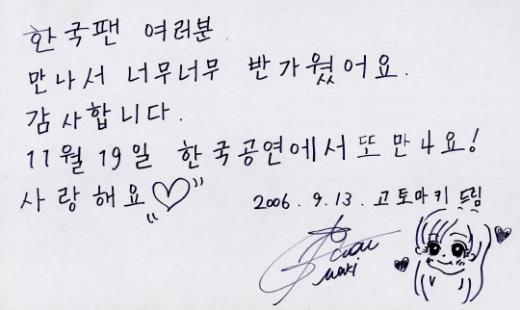 한국팬 여러분
만나서 너무너무 반가웠어요.
감사합니다.
11월 19일 한국공연에서 또 만나요!
사랑해요
2006. 9. 13. 고토마키 드림
Maki